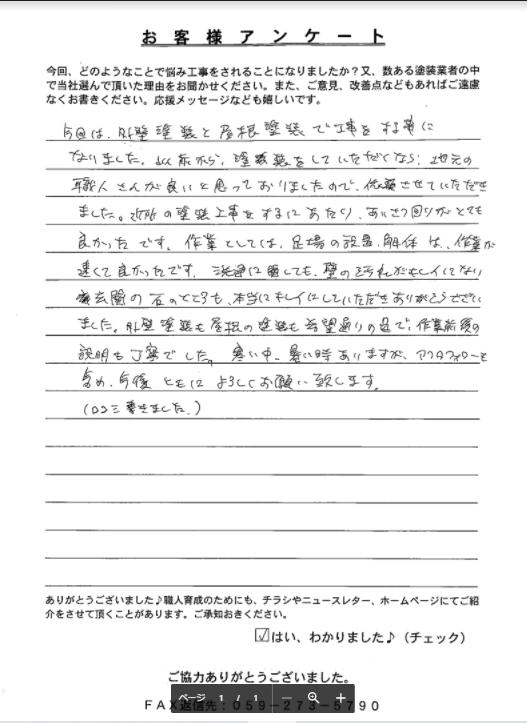 お客様アンケート
今回、どのようなことで悩み工事をされることになりましたか?又、数ある塗装業者の中
で当社選んで頂いた理由をお聞かせください。また、ご意見、改善点などもあればご遠慮
なくお書きください。応援メッセージなども嬉しいです。
今回は、外壁塗装と屋根塗装で工事をする事に
なりました。以前から、塗装をしていただくなら、地元の
職人さんが良いと思っておりましたので、依頼させていただき
ました。近所の塗装工事をするにあたり、あいさつ回りがとても
良かったです。作業としては、足場の設置、解体は、作業が
速くて良かったです。洗浄に関しても、壁の汚れがキレイになり
玄関の石のところも、本当にキレイにしていただきありがとうござい
ました。外壁塗装も屋根の塗装も希望通りの色で、作業前後の
説明も丁寧でした。寒い中、暑い時ありますが、アフターフォローを
含め、今後ともによろしくお願い致します。
(口コミ書きました。)
ありがとうございました♪職人育成のためにも、チラシやニュースレター、ホームページにてご紹
介をさせて頂くことがあります。ご承知おきください。
☑はい、わかりました♪(チェック)
ご協力ありがとうございました。
ページ 1 / 1
FAX返信先:059-273-5790